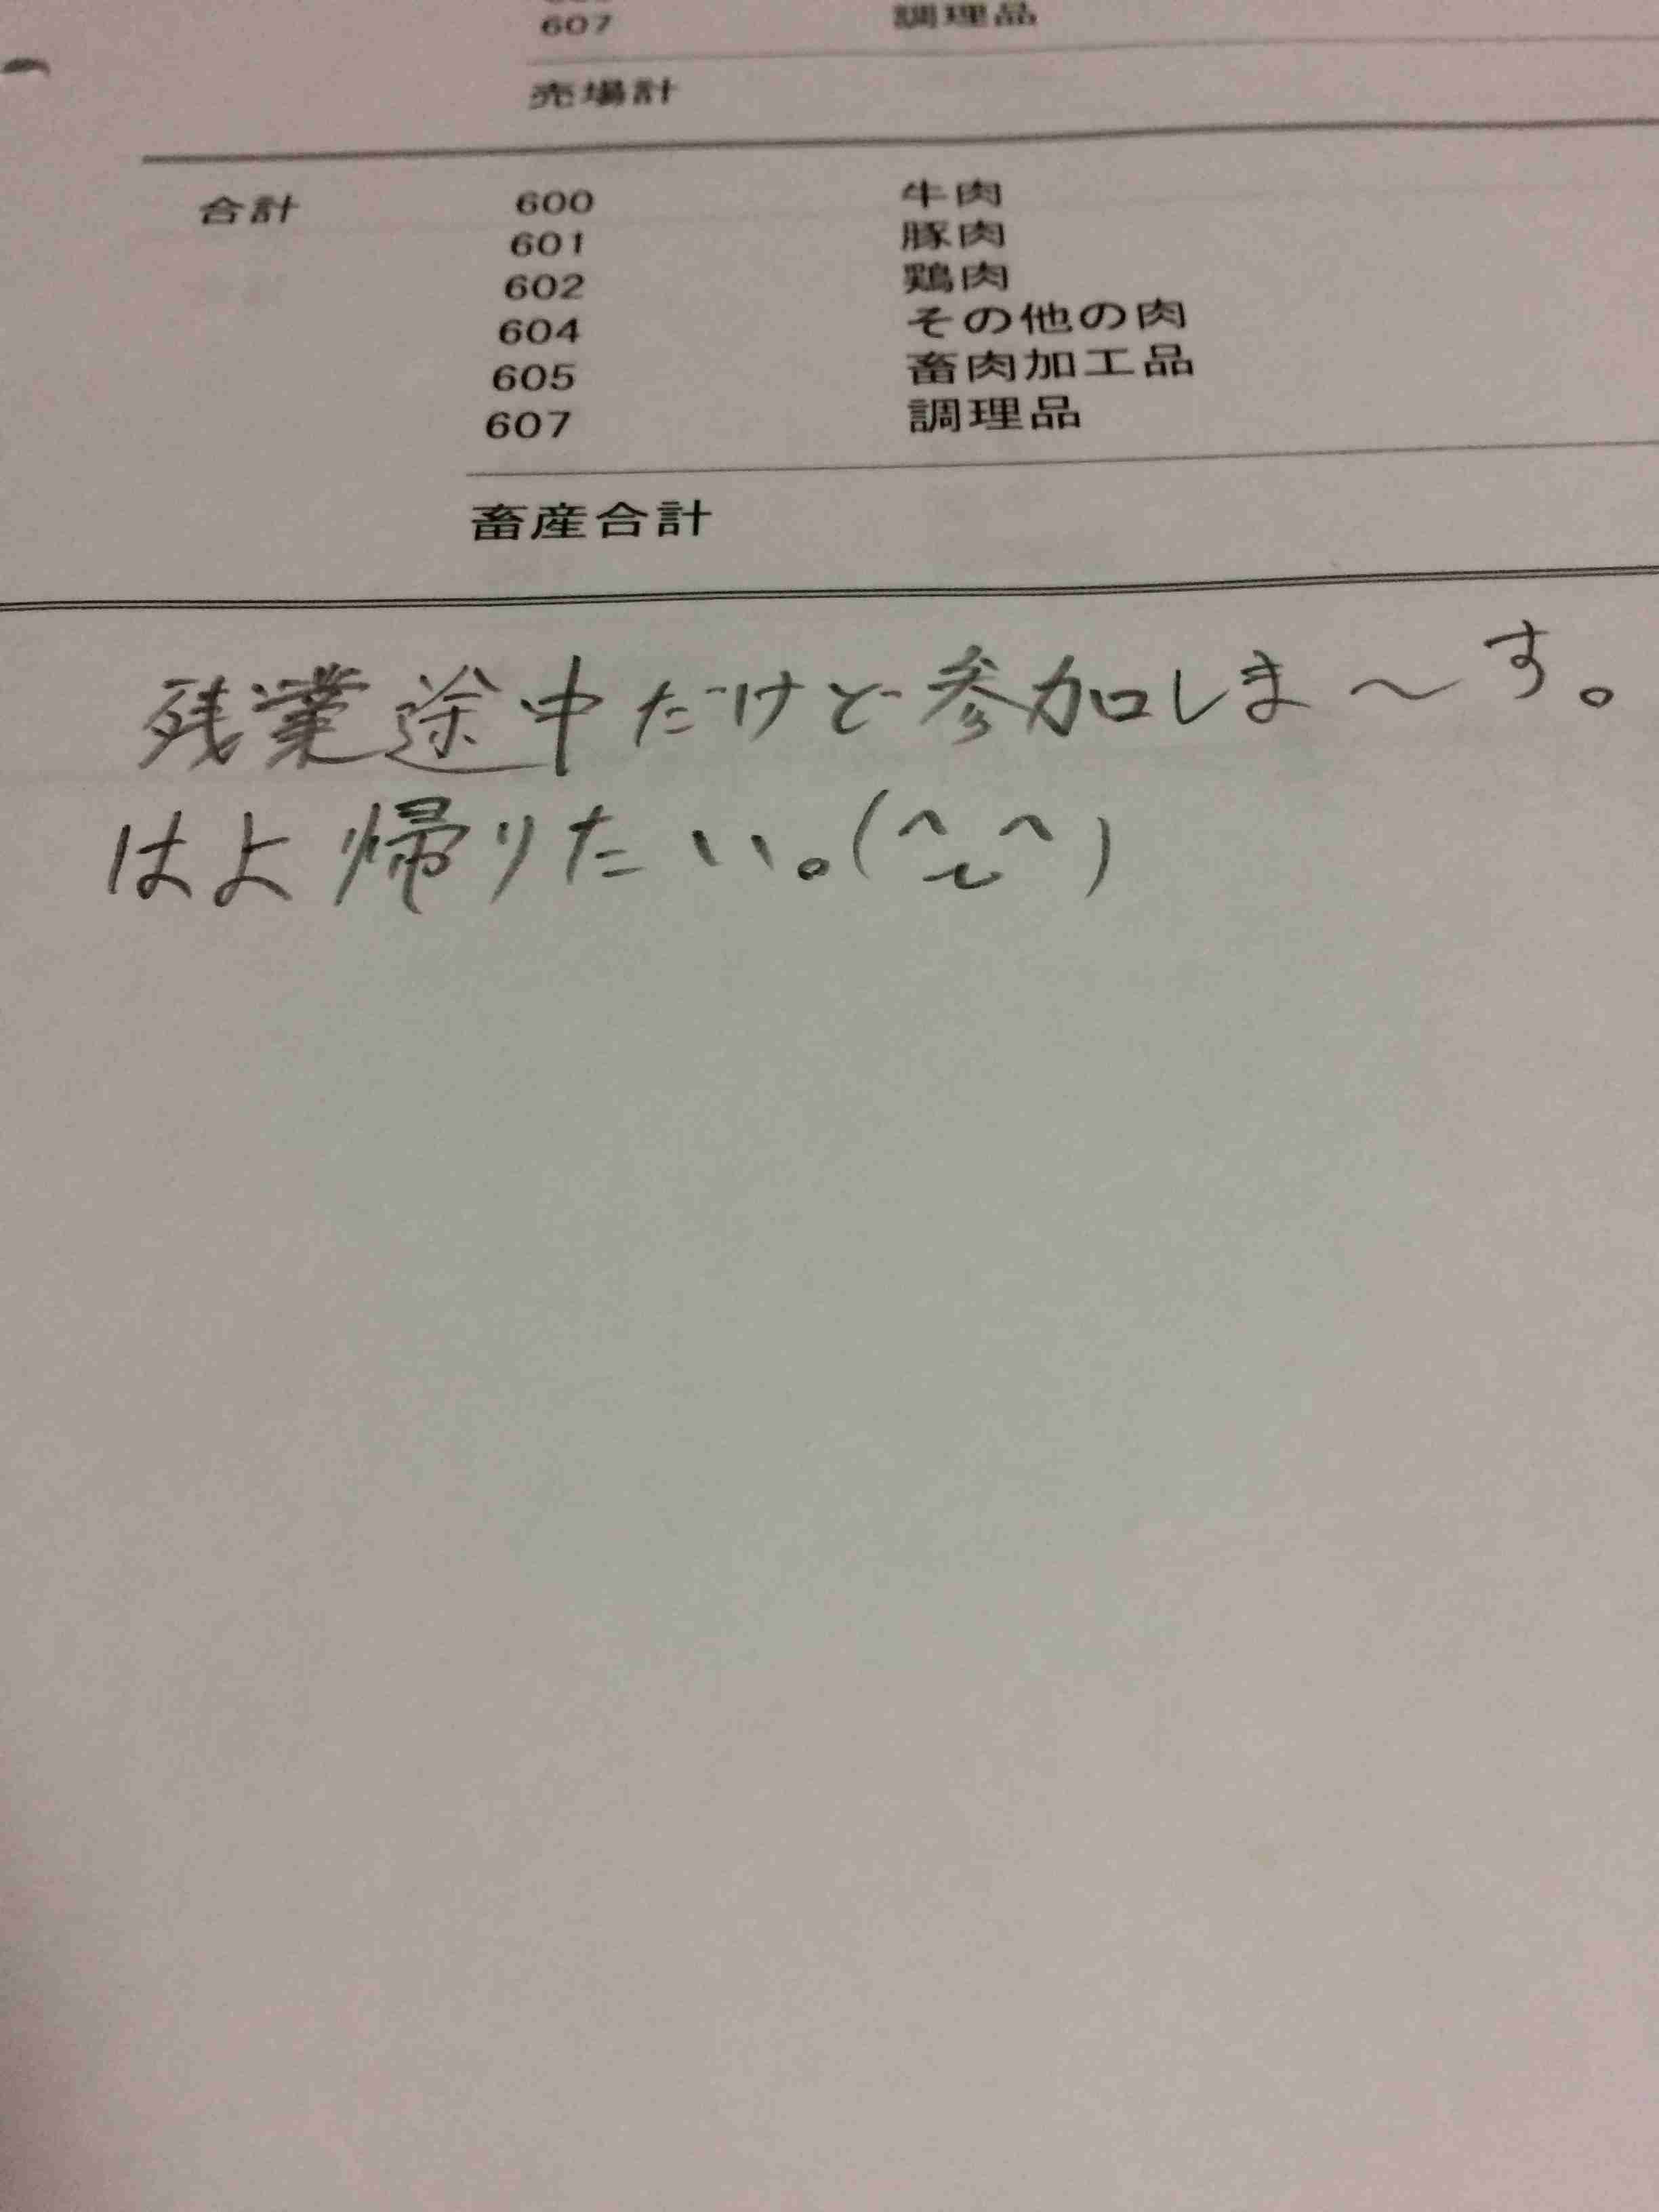 607 調理品
売場計
合計 600 牛肉
601 豚肉
602 鶏肉
604 その他の肉
605 畜肉加工品
607 調理品
畜産合計
残業途中だけど参加しま～す。
はよ帰りたい。(^_~^)